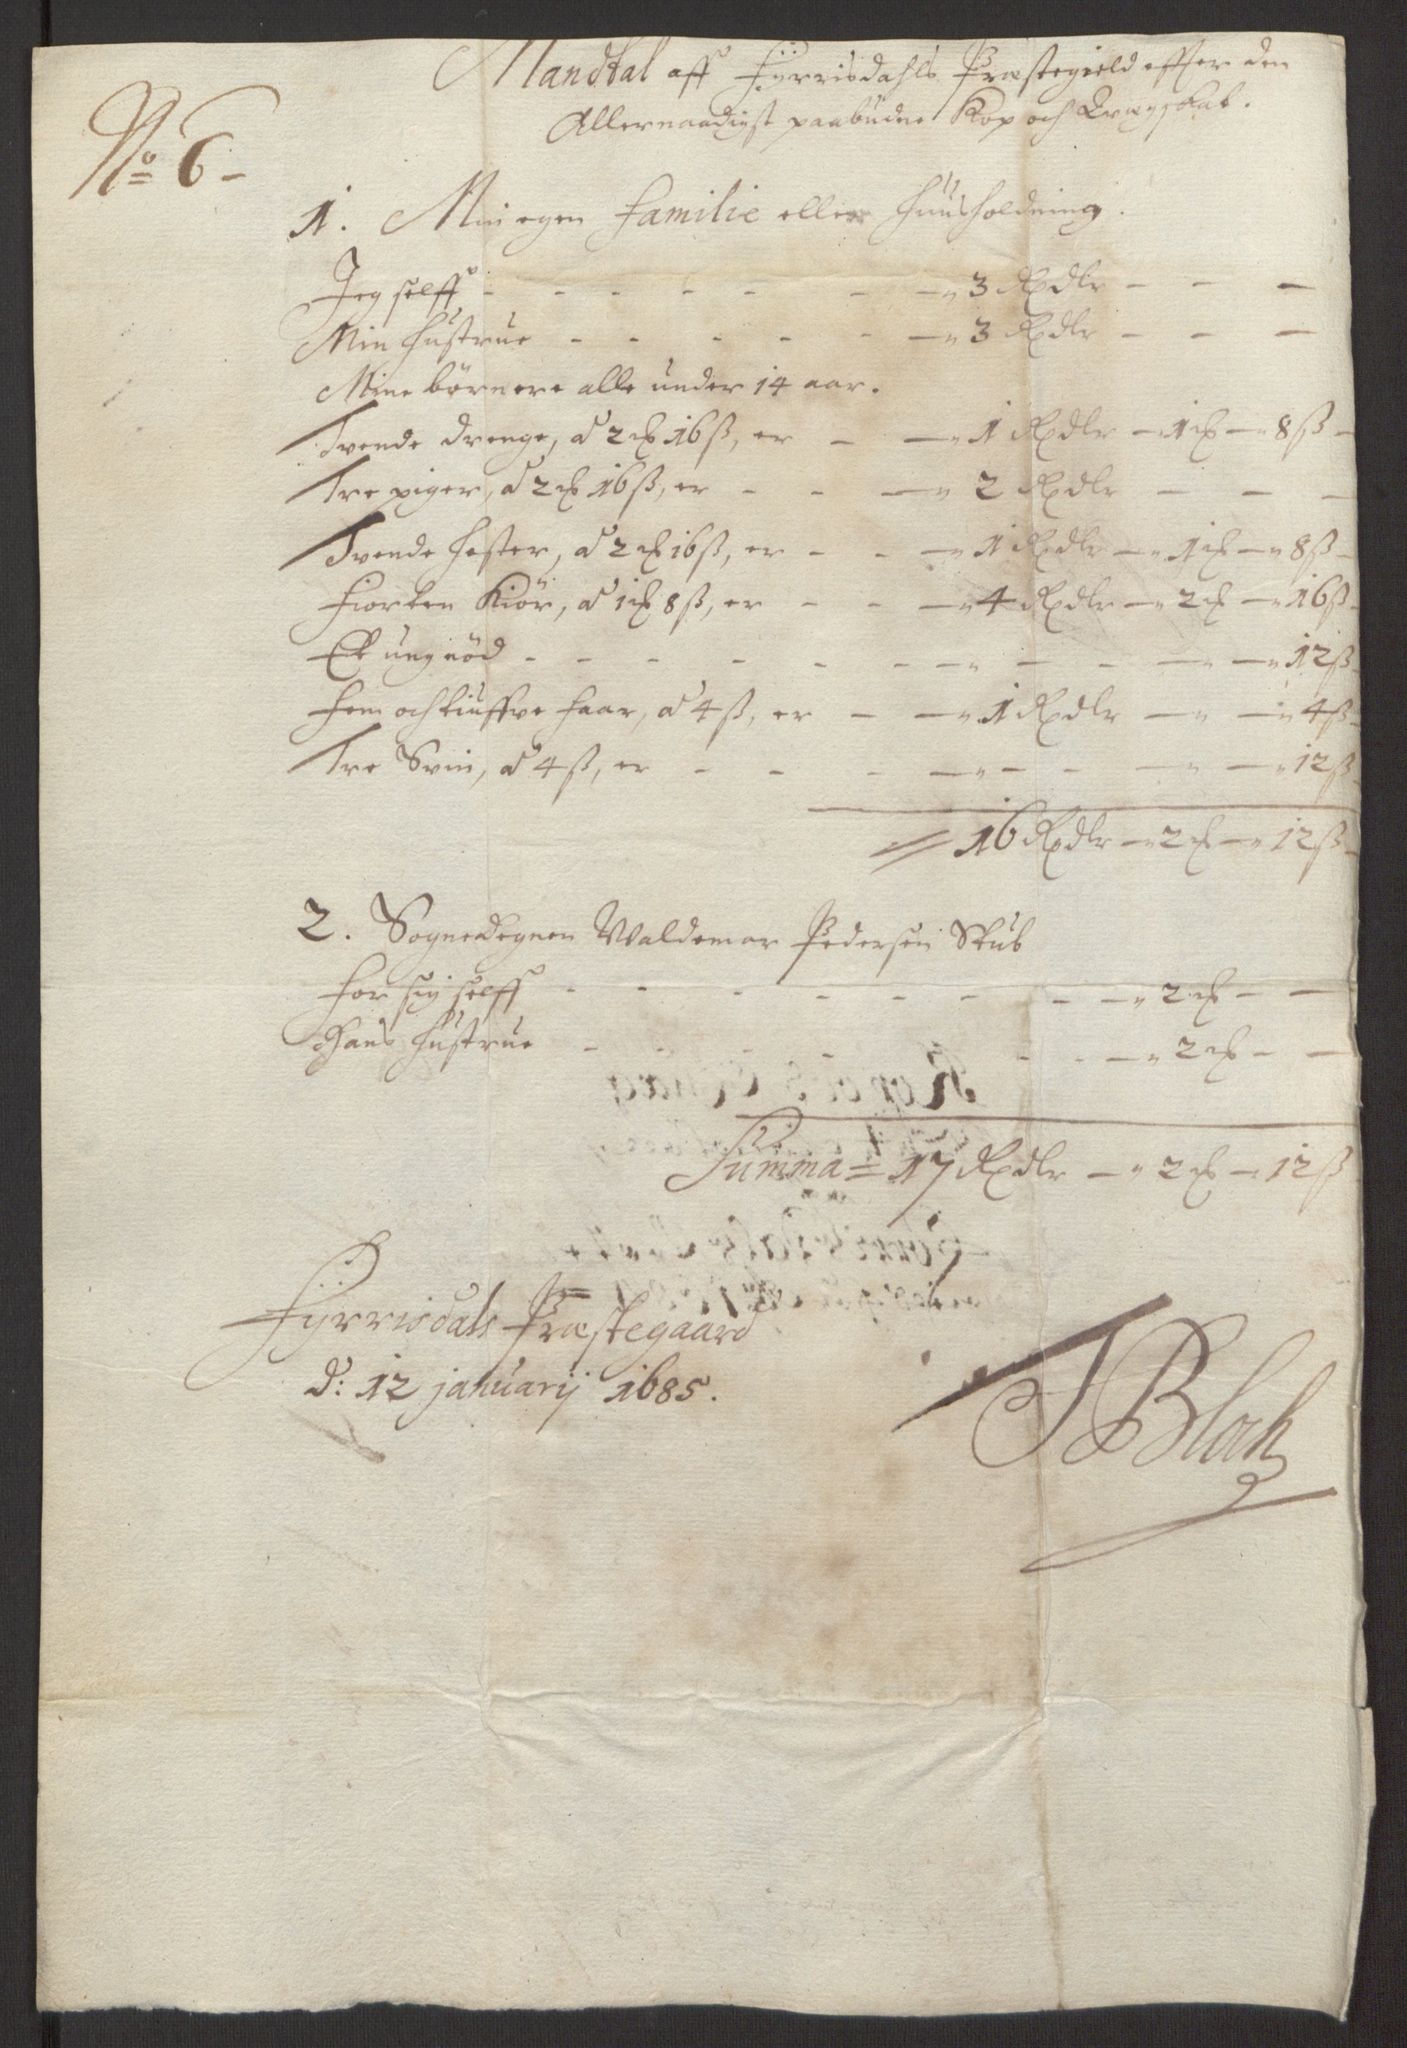 Mandtal aff Fÿrrisdahls Præstegield effter den
Allernaadigst paabudne Kop och Qvægskat.
No 6
1. Min egen Familie eller Huusholdning.
Jeg selff - 3 Rdlr
Min Hustrue - 3 Rdlr
Mine børn ere alle under 14 aar.
Tvende drenge, a 2 ℳ 16 ß, er - 1 Rdlr - 1 ℳ - 8 ß
Tre piger, a 2 ℳ 16 ß, er - 2 Rdlr
Tvende Hester, a 2 ℳ 16 ß, er - 1 Rdlr - 1 ℳ - 8 ß
Fiorten Kiör, a 1 ℳ 8 ß, er - 4 Rdlr - 2 ℳ - 16 ß
Et ungnöd - 12 ß
Fem och tiuffve Faar, a 4 ß, er - 1 Rdlr - 4 ß
Tre Svin, a 4 ß, er - 12 ß
16 Rdlr - 2 ℳ - 12 ß
2. Sognedegnen Waldemar Pedersen Skub
For sig selff - 2 ℳ
Hans Hustrue - 2 ℳ
Summa = 17 Rdlr - 2 ℳ - 12 ß
Fÿrrisdals Præstegaard
d: 12 januarij 1685.
T Bloch